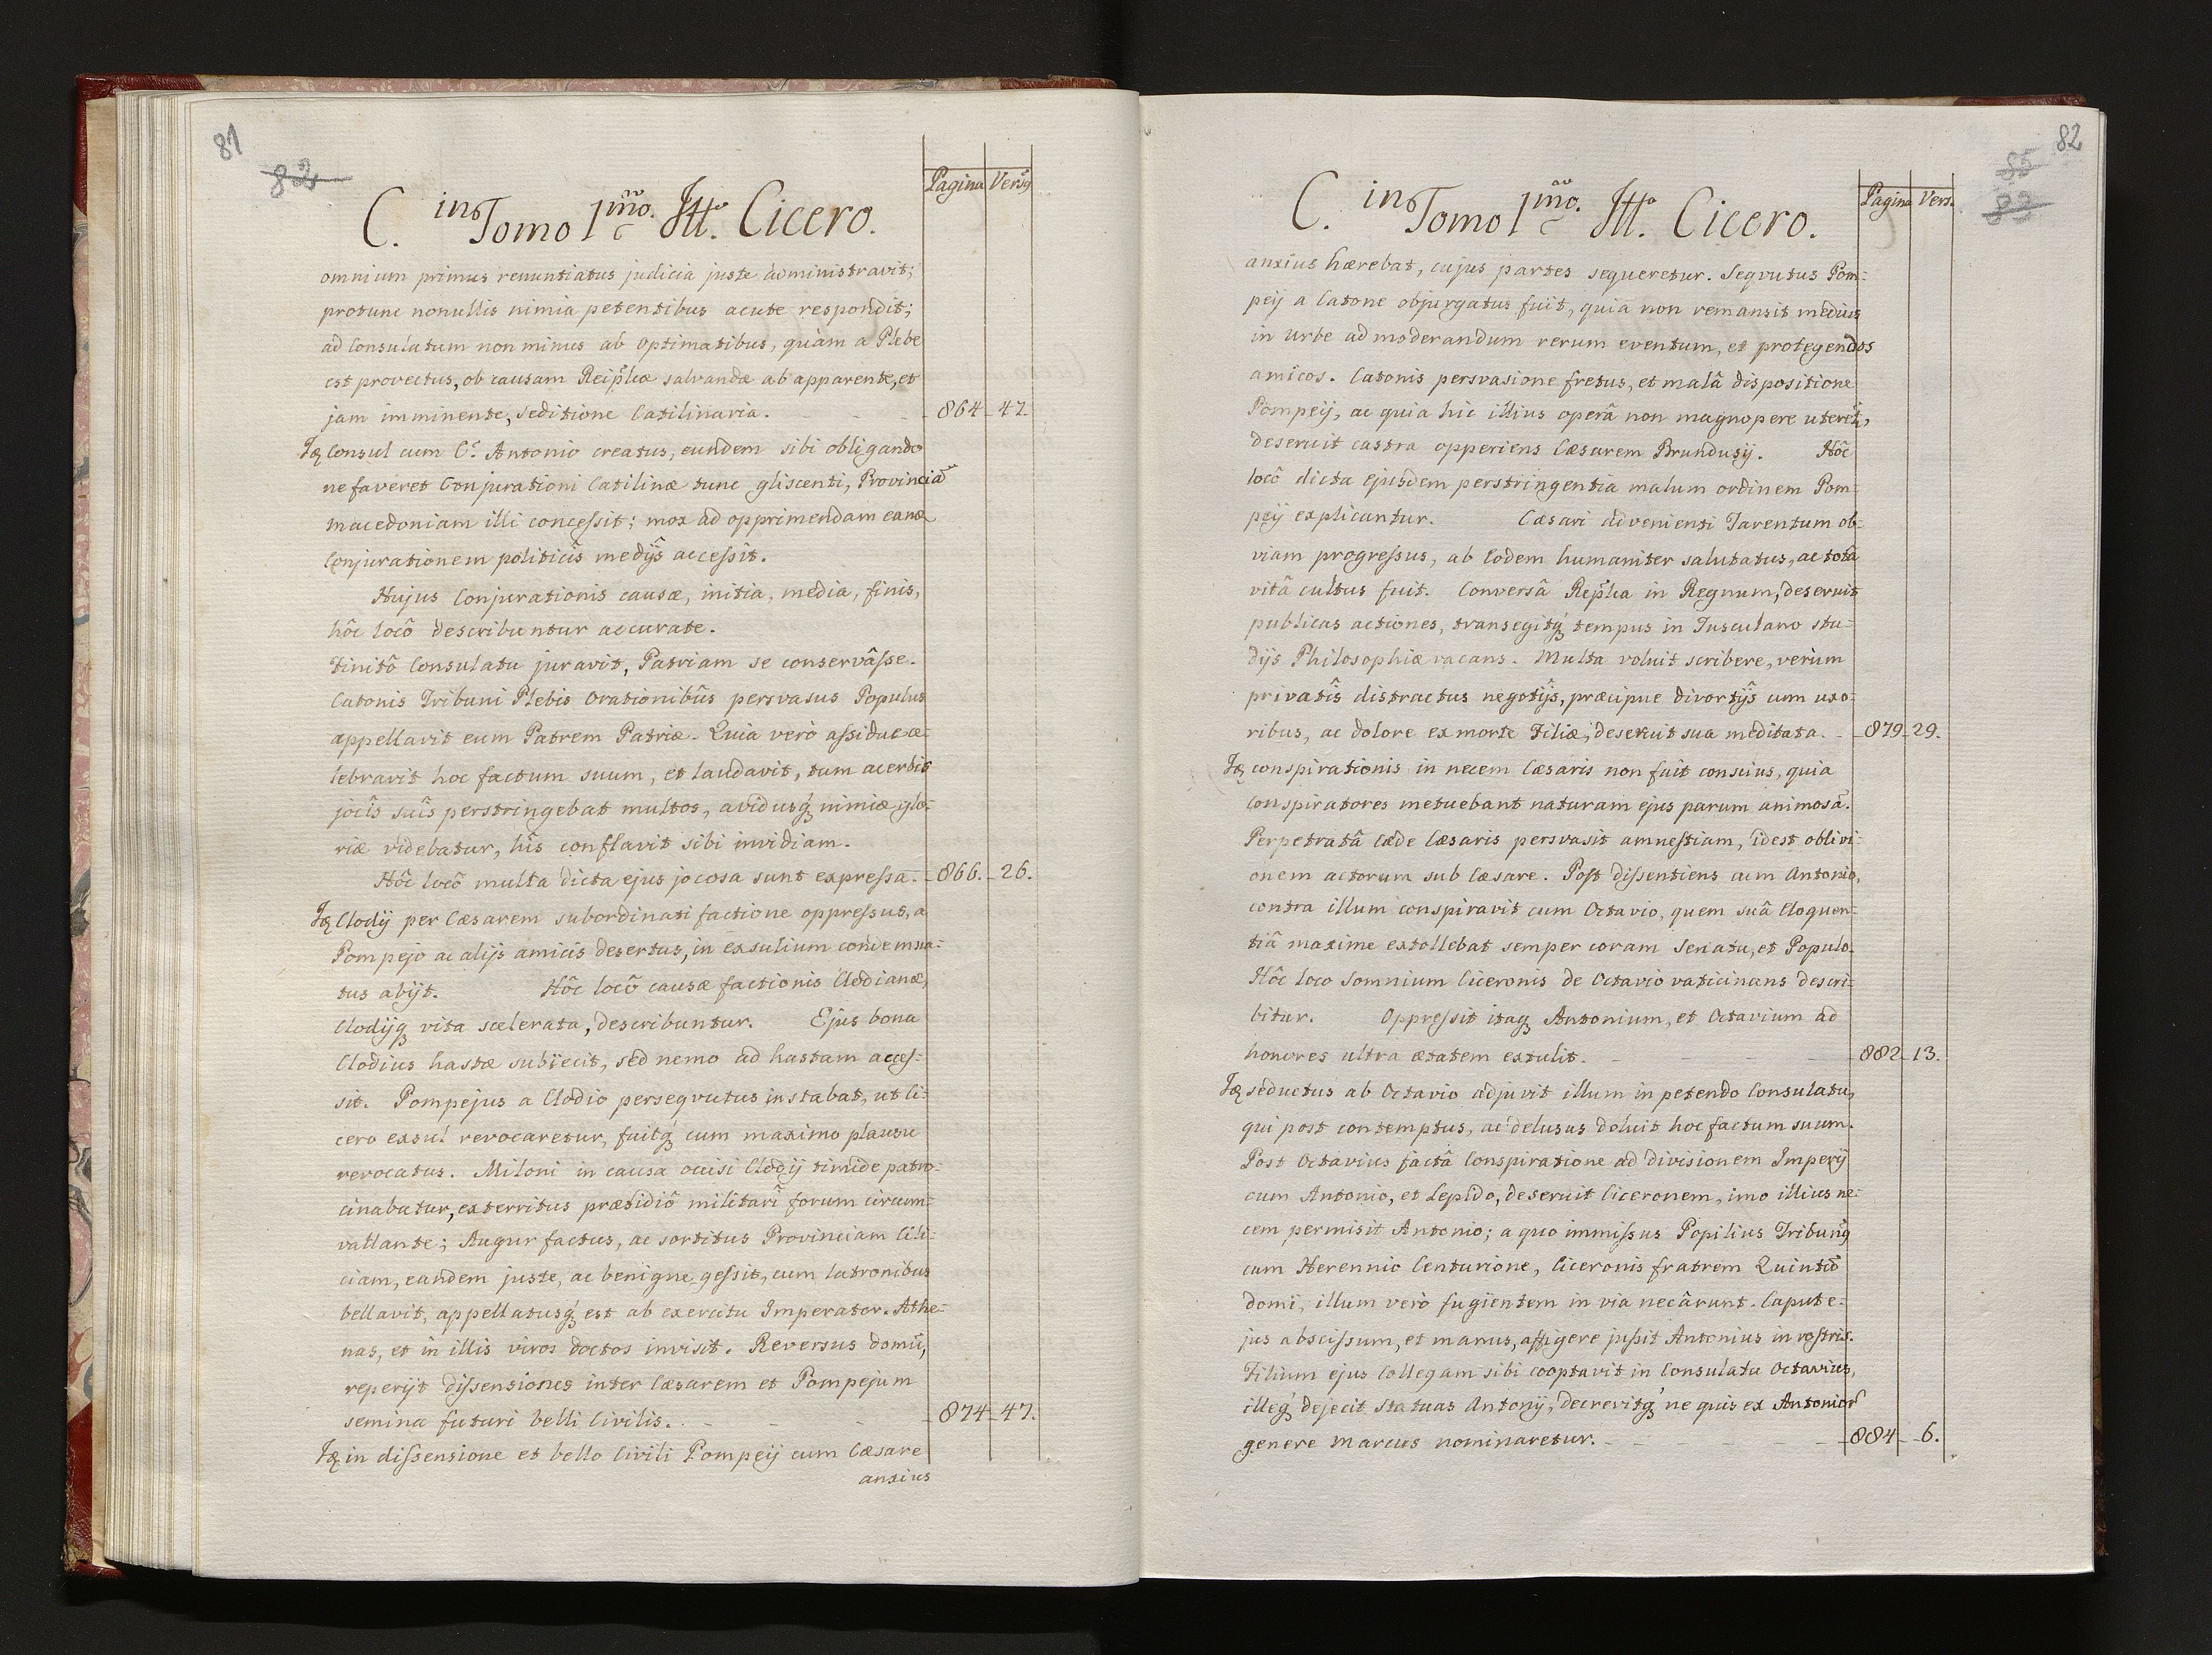 81
82
C. in Tomo 1mo. Itt. Cicero.
Pagina Versq
omnium primus renuntiatus judicia juste administravit;
protunc nonullis nimia petentibus acute respondit;
ad Consulatum non minus ab optimatibus, quàm a Plebe
est provectus, ob causam Reiplcæ salvandæ ab apparente, et
jam imminente, seditione Catilinaria. - - - 864 - 47.
Consul cum C. Antonio creatus, eundem sibi obligando
ne faveret Conjurationi Catilinæ tunc gliscenti, Provinciã
Macedoniam illi conceſsit; mox ad opprimendam eand
Conjurationem politicîs medijs acceſsit.
Hujus Conjurationis causæ, initia, media, finis,
hôc locô describuntur accurate.
Finitô Consulatu juravit, Patriam se conservâſse.
Catonis Tribuni Plebis Orationibûs persvasus Populus
appellavit eum Patrem Patriæ. Quia verò aſsidue ce-
lebravit hoc factum suum, et laudavit, tum acerbis
jocîs suîs perstringebat multos, avidusq́ nimiæ glo-
riæ videbatur, hîs conflavit sibi invidiam.
Hôc locô multa dicta ejus jocosa sunt expreſsa. - 866. - 26.
Clodij per Cæsarem subordinati factione oppreſsus, a
Pompejo ac alijs amicis desertus, in exsulium condemna-
tus abijt. Hôc locô causæ factionis Clodianæ,
Clodijq vita scelerata, describuntur. Ejus bona
Clodius hastæ subjecit, sed nemo ad hastam acceſ-
sit. Pompejus a Clodio perseqvutus instabat, ut Ci-
cero exsul revocaretur, fuitq́ cum maximo plausu
revocatus. Miloni in causa occisi Clodij timide patro-
cinabatur, exterritus præsidiô militari forum circum-
vallante; Augur factus, ac sortitus Provinciam Cili-
ciam, eandem juste, ac benigne geſsit, cum latronibus
bellavit, appellatusq́ est ab exercitu Imperator. Athe-
nas, et in illis viros doctos invisit. Reversus domũ,
reperijt diſsensiones inter Cæsarem et Pompejum
semina futuri belli Civilis. - - - - 874 - 47.
in diſsensione et bello Civili Pompeij cum Cæsare
anxius
82
85
83
C. in Tomo 1mo. Itt. Cicero.
Pagina Vers.
anxius hærebat, cujus partes sequeretur. Seqvutus Pom-
peij a Catone objurgatus fuit, quia non remansit medius
in Urbe ad moderandum rerum eventum, et protegendos
amicos. Catonis persvasione fretus, et malâ dispositione
Pompeij, ac quia hic illius operâ non magnopere uteret,
deseruit castra opperiens Cæsarem Brundusij. Hôc
locô dicta ejusdem perstringentia malum ordinem Pom-
peij explicantur. Cæsari advenienti Tarentum ob-
viam progreſsus, ab Eodem humaniter salutatus, ac totâ
vitâ cultus fuit. Conversâ Replca in Regnum, deseruit
publicas actiones, transegitq́ tempus in Tusculano stu-
dijs Philosophiæ vacans. Multa voluit scribere, verùm
privatîs distractus negotijs, præcipue divortijs cum uxo-
ribus, ac dolore ex morte Filiæ, deseruit sua meditata. - 879 - 29.
conspirationis in necem Cæsaris non fuit conscius, quia
Conspiratores metuebant naturam ejus parum animosã.
Perpetratâ cæde Cæsaris persvasit amnestiam, idest oblivi-
onem actorum sub Cæsare. Post diſsentiens cum Antonio,
contra illum conspiravit cum Octavio, quem suâ Eloquen-
tiâ maxime extollebat semper coram Senatu, et Populo.
Hôc loco Somnium Ciceronis de Octavio vaticinans descri-
bitur. Oppreſsit itaq Antonium, et Octavium ad
honores ultra ætatem extulit. - - - - 882 - 13.
seductus ab Octavio adjuvit illum in petendo Consulatu,
qui post contemptus, ac delusus doluit hoc factum suum.
Post Octavius factâ Conspiratione ad divisionem Imperij
cum Antonio, et Lepido, deseruit Ciceronem, imo illius ne-
cem permisit Antonio; a quo immiſsus Popilius Tribunq
cum Herennio Centurione, Ciceronis fratrem Quintũ
domi, illum verò fugientem in via necârunt. Caput e-
jus absciſsum, et manus, affigere juſsit Antonius in rostris.
Filium ejus Collegam sibi cooptavit in Consulatu Octavius,
illeq́ dejecit statuas Antonij, decrevitq́ ne quis ex Antoniorũ
genere Marcus nominaretur. - - - - 884 - 6.